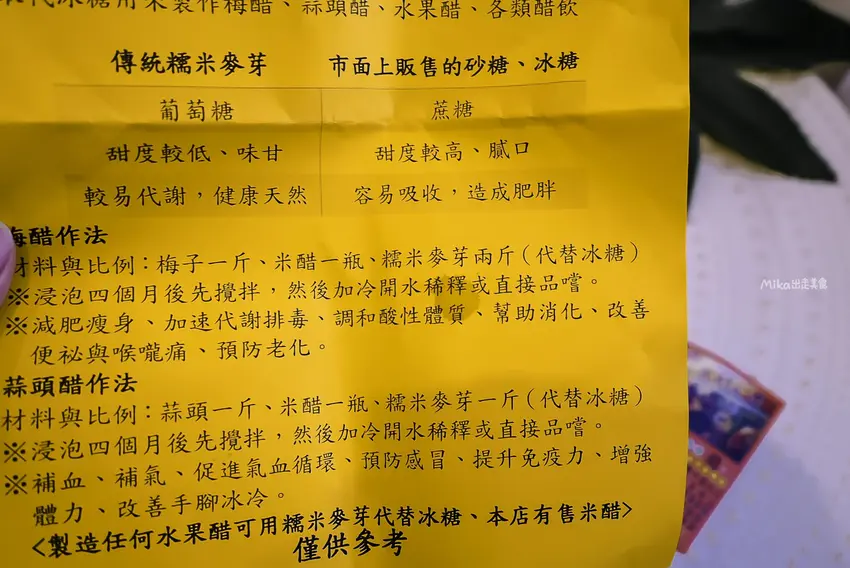 代冰糖用來製作梅醋、蒜頭醋、水果醋、各類醋飲
傳統糯米麥芽 市面上販售的砂糖、冰糖
葡萄糖 蔗糖
甜度較低、味甘 甜度較高、膩口
較易代謝，健康天然 容易吸收，造成肥胖
梅醋作法
材料與比例：梅子一斤、米醋一瓶、糯米麥芽兩斤（代替冰糖）
※浸泡四個月後先攪拌，然後加冷開水稀釋或直接品嚐。
※減肥瘦身、加速代謝排毒、調和酸性體質、幫助消化、改善
便祕與喉嚨痛、預防老化。
蒜頭醋作法
材料與比例：蒜頭一斤、米醋一瓶、糯米麥芽一斤（代替冰糖）
※浸泡四個月後先攪拌，然後加冷開水稀釋或直接品嚐。
※補血、補氣、促進氣血循環、預防感冒、提升免疫力、增強
體力、改善手腳冰冷。
<製造任何水果醋可用糯米麥芽代替冰糖、本店有售米醋>
僅供參考
Mika出走美食